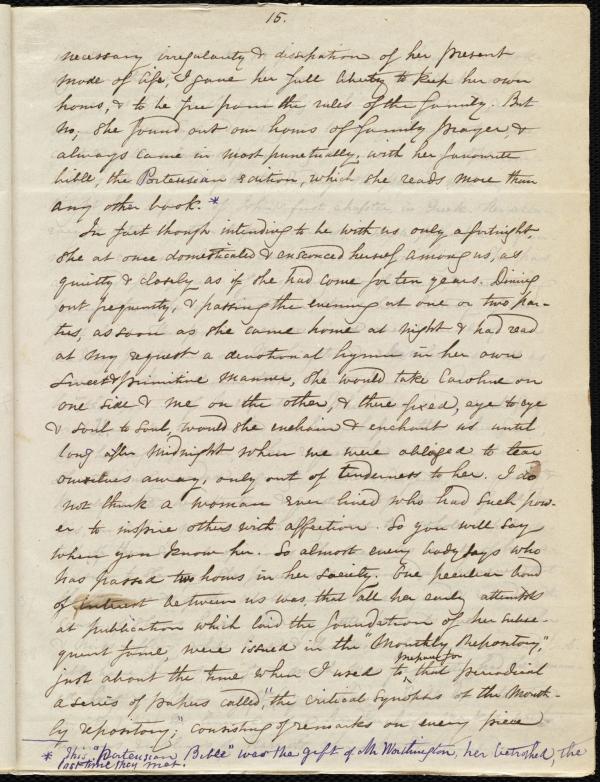 15.
necessary irregularity & dissipation of her present
mode of life, I gave her full liberty to keep her own
hours, & to be free from the rules of the family. But
no, she found out our hours of family prayer &
always came in most punctually, with her favourite
bible, the Porteusian edition, which she reads more than
any other book. *
In fact though intending to be with us only a fortnight,
she at once domesticated & ensconced herself among us, as
quietly & closely as if she had come for ten years. Dining
out frequently, & passing the evening at one or two par-
ties, as soon as she came home at night & had read
at my request a devotional hymn in her own
sweet & primitive manner, she would take Caroline on
one side & me on the other, & there fixed, eye to eye
& soul to soul, would she enchain & enchant us until
long after midnight when we were obliged to tear
ourselves away, only out of tenderness to her. I do
not think a woman ever lived who had such pow-
er to inspire others with affection. So you will say
when you know her. So almost every body says who
has passed two hours in her society. One peculiar bond
of interest between us was, that all her early attempts
at publication which laid the foundation of her subse-
quent fame were issued in the "Monthly Repository",
just about the time when I used to prepare for that periodical
a series of papers called, "the critical synopsis of the Month-
ly repository," consisting of remarks on every piece
* This "Porteusian Bible" was the gift of Mr Worthington, her betrothed, the
last time they met.